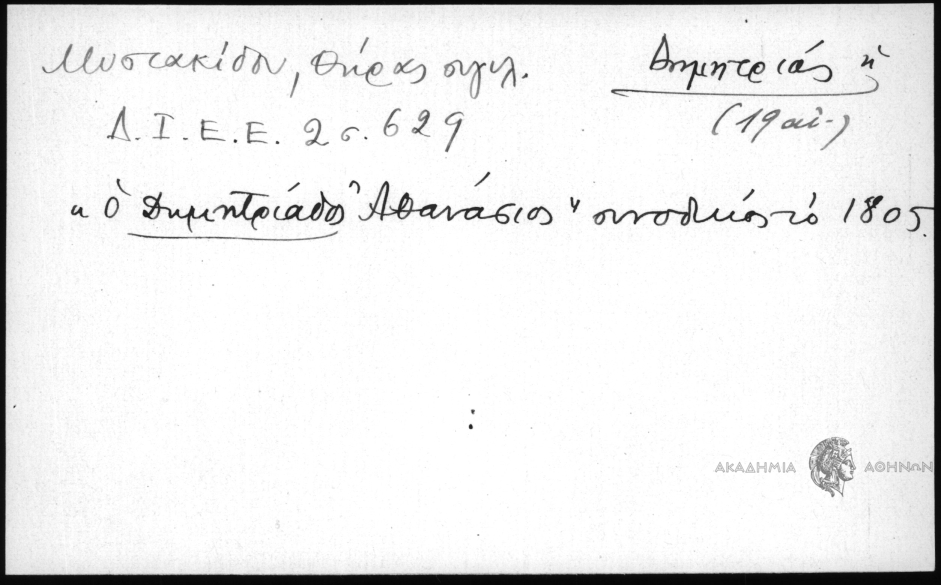 Μυστακίδου, Θήρας σιγιλ.
Δημητριάς ἡ
(19 αἰ.)
Δ.Ι.Ε.Ε. 2 σ. 629
"ὁ Δημητριάδος Ἀθανάσιος" συνοδικός τὸ 1805.
ΑΚΑΔΗΜΙΑ ΑΘΗΝΩΝ